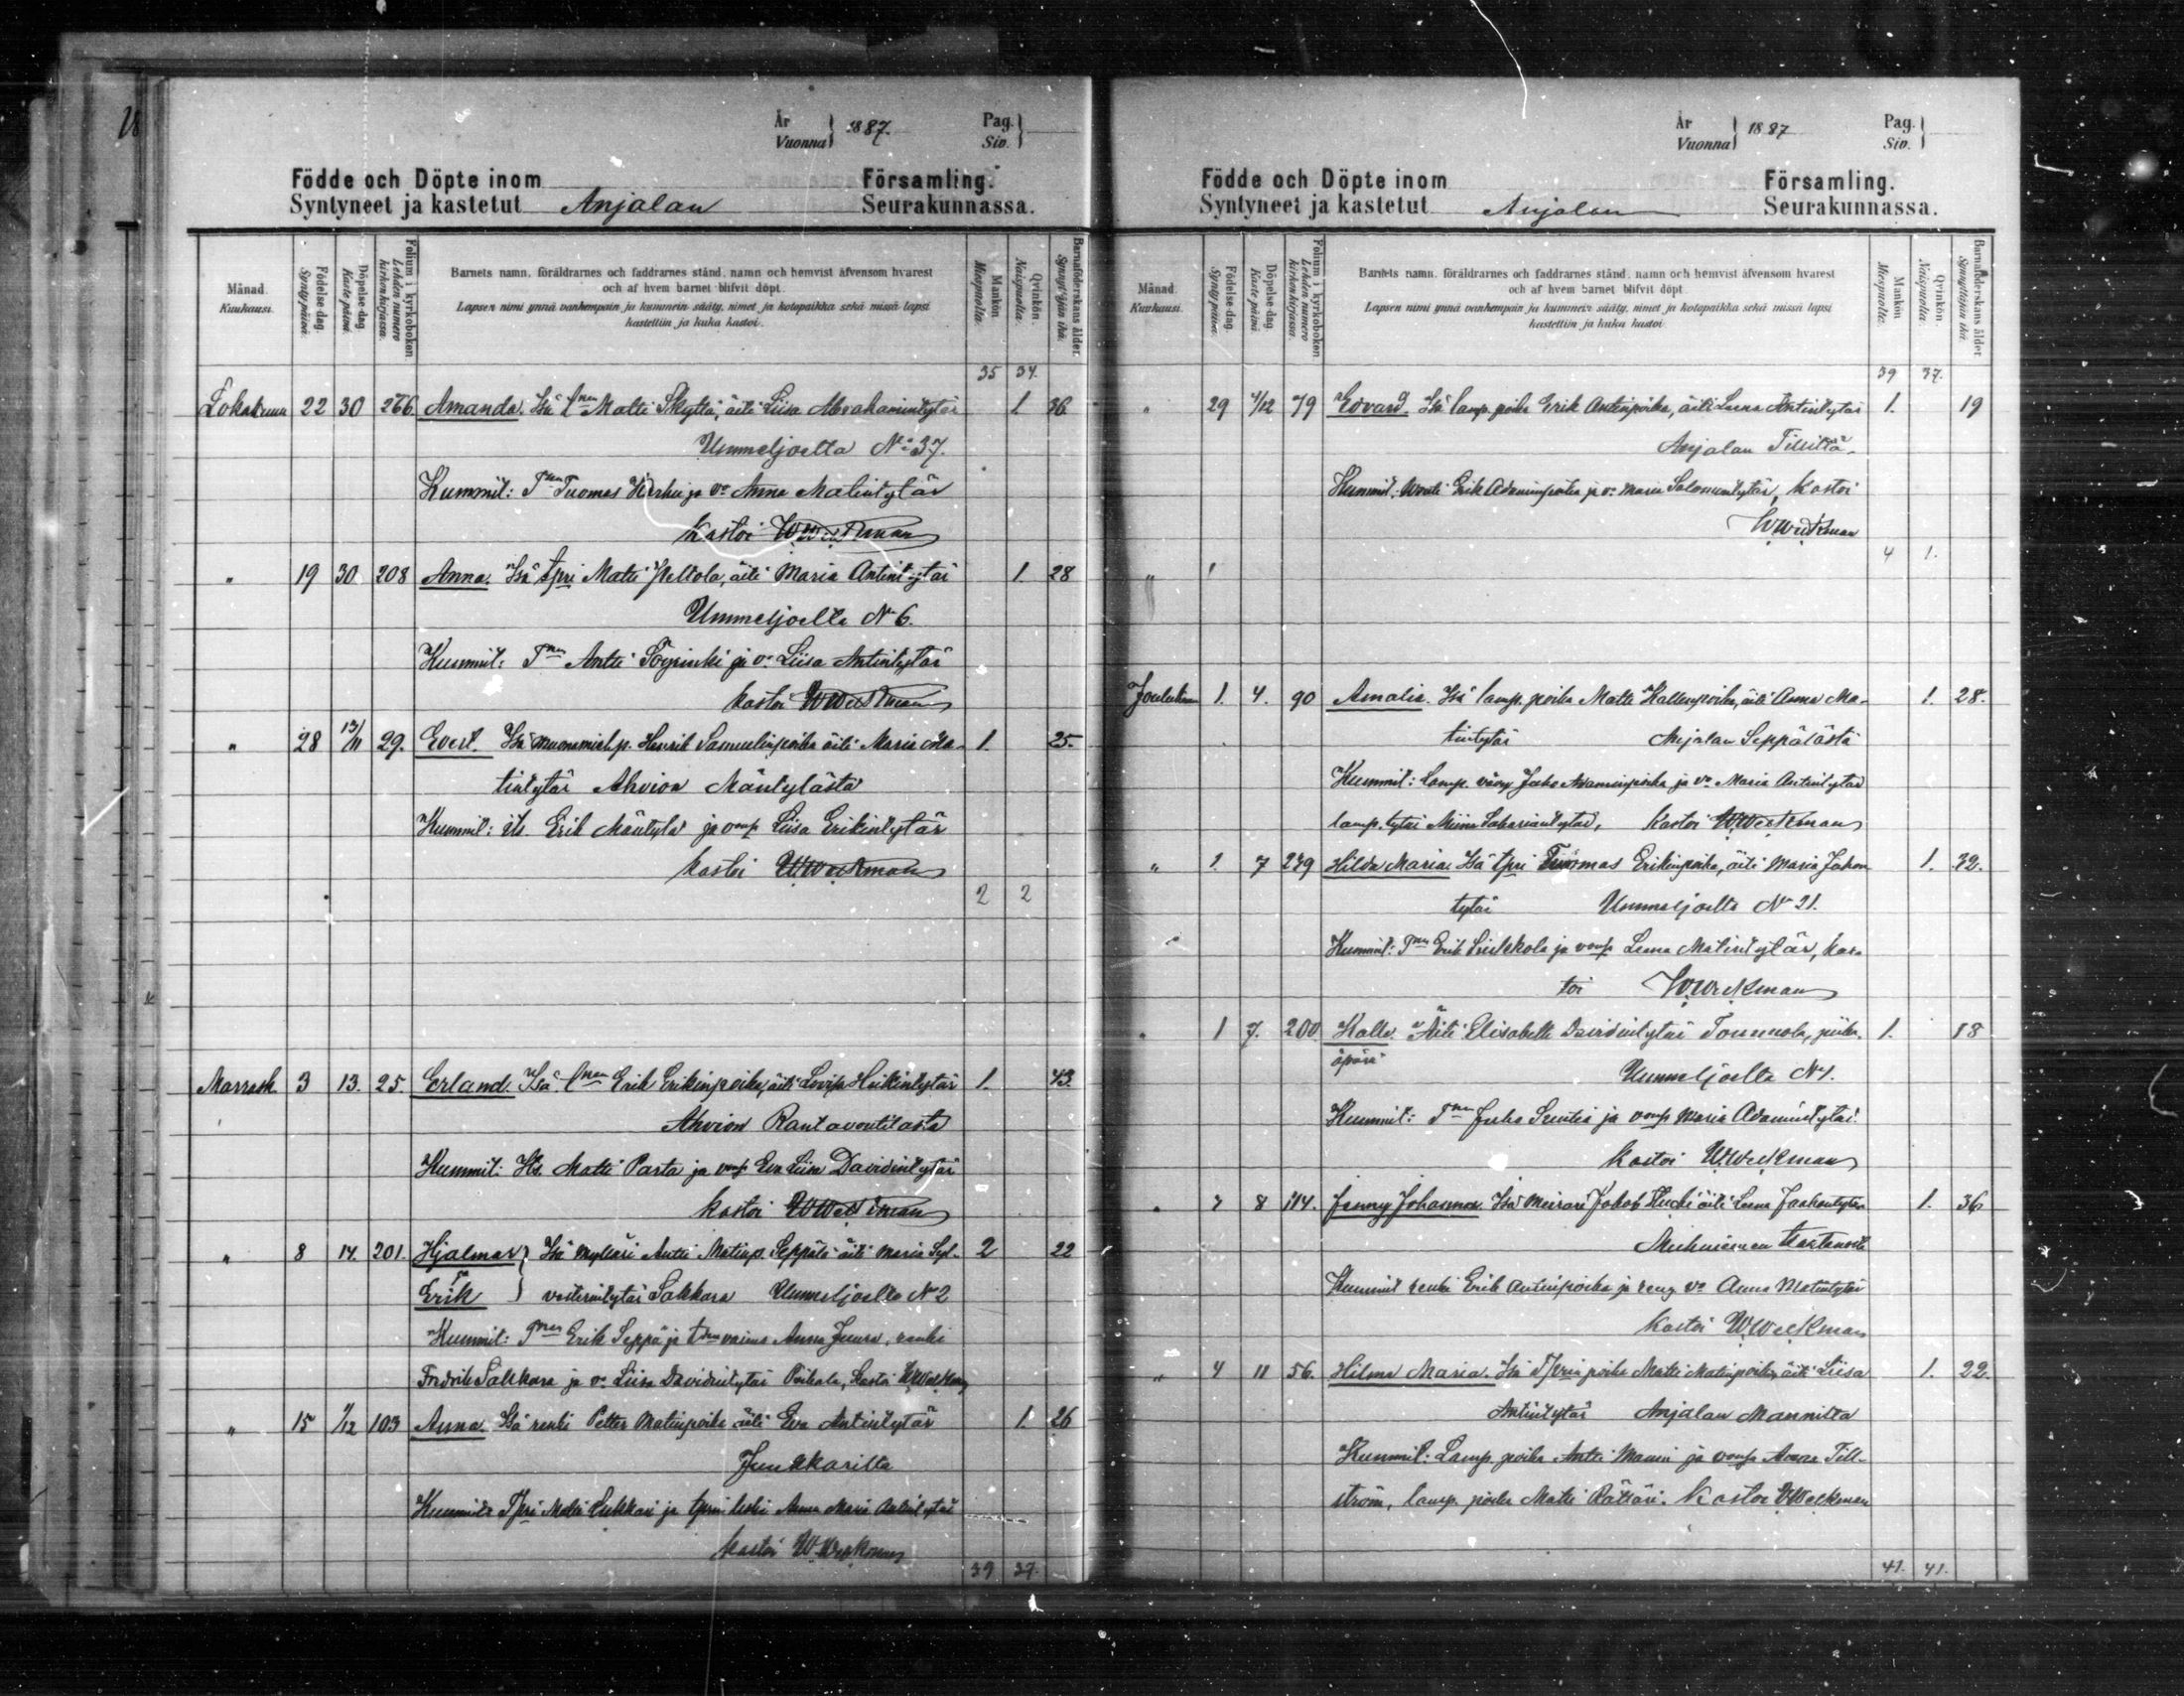 28
År
Vuonna
1887.
Pag.
Siv.
Födde och Döpte inom
Församling.
Syntyneet ja kastetut Anjalan Seurakunnassa.
Månad
Kuukausi.
Födelse-dag.
Syntypäivä.
Döpelse-dag.
Kaste-päivä.
Folium i kyrkoboken
Lehden numero
kirkonkirjassa.
Barnets namn, föräldrarnes och faddrarnes stånd, namn och hemvist äfvensom hvarest
och af hvem barnet blifvit döpt.
Lapsen nimi ynnä vanhempain ja kummein sääty, nimet ja kotopaikka sekä missä lapsi
kastettiin ja kuka kastoi.
Mankön
Miespuolta.
Qvinkön.
Naispuolta.
Barnaföderskans ålder.
Synnyttäjän ikä.
35 34.
Lokakuun 22 30 266 Amanda. Isä Matti Skyttä, äiti Liisa Abrahamintytär 1 36
Ummeljoelta No 37.
Kummit: Tuomas ja vo Anna Matintytär
kastoi WWeckman
" 19 30 208 Anna. Isä tpri Matti Peltola, äiti Maria Antintytär 1. 28
Ummeljoelta N 6.
Kummit: Antti ja vo Liisa Antintytär
kastoi WWeckman
" 28 13/11 29. Evert. Isä Henrik Samuelinpoika äiti Maria Ma- 1. 25.
tintytär Ahvion Mäntylästä
Kummit: its. Erik Mäntylä ja vmo Liisa Erikintytär
kastoi WWeckman
2 2
Marrask. 3 13. 25. Erland. Isä Erik Erikinpoika, äiti Lovisa Heikintytär 1. 43.
Ahvion Rantavoutilasta
Kummit: Its. Matti Parta ja Eva Liisa Davidintytär
kastoi WWeckman
" 8 14. 201. Hjalmar Isä mylläri Antti Matinp. Seppälä äiti Maria Syl- 2 22
ja
Erik vesterintytär Sakkara Ummeljoelta N 2
Kummit: Erik Seppä ja vaimo Anna Juura, renki
Fredrik Sakkara ja vo Liisa Davidintytär kastoi WWeckman
" 15 1/12 103 Anna. Isä renki Petter Matinpoika äiti Eva Antintytär 1. 26
Junkkarilta
Kummit: Tpri Matti ja leski Anna Maria Antintytär
kastoi W.Weckman
39 37.
År
Vuonna
1887
Pag.
Siv.
Födde och Döpte inom
Församling.
Syntyneet ja kastetut Anjalan Seurakunnassa.
Månad
Kuukausi.
Födelse-dag.
Syntypäivä.
Döpelse-dag.
Kaste-päivä.
Folium i kyrkoboken
Lehden numero
kirkonkirjassa.
Barnets namn, föräldrarnes och faddrarnes stånd, namn och hemvist äfvensom hvarest
och af hvem barnet blifvit döpt.
Lapsen nimi ynnä vanhempain ja kummein sääty, nimet ja kotopaikka sekä missä lapsi
kastettiin ja kuka kastoi.
Mankön
Miespuolta.
Qvinkön.
Naispuolta.
Barnaföderskans ålder
Synnyttäjän ikä.
39 37.
" 29 4/12 79 Edvard. Isä lamp. poika Erik Antinpoika, äiti Leena Antintytär 1. 19
Anjalan Tilliltä.
Kummit: Erik Adaminpoika ja vo Maria Salomontytär, kastoi
WWeckman
4 1.
" 1
Joulukuun 1. 4. 90 Amalia. Isä lamp. poika Matti Kallenpoika, äiti Anna Ma- 1. 28.
tintytär Anjalan Seppälästä
Kummit: Lamp. vävy Juho Adaminpoika ja vo Maria Antintytär
lamp. tytär Miina Sakariantytär, kastoi WWeckman
" 1. 7 239 Hilda Maria. Isä tpri Tuomas Erikinpoika, äiti Maria Johan 1. 32.
tytär Ummeljoelta N 21.
Kummit: Erik ja Leena Matintytär, kas-
toi WWeckman
" 1 7. 200 Kalle. Äiti Elisabeth Davidintytär Tommola, piika. 1. 18
äpärä
Ummeljoelta N 1.
Kummit: Juho ja Maria Adamintytär.
kastoi WWeckman
" 7 8 114. Jenny Johanna. Isä Jakob äiti Leena Jaakontytär 1. 36
Kummit renki Erik Antinpoika ja reng. vo Anna Matintytär
kastoi WWeckman
" 4 11 56. Hilma Maria. Isä poika Matti Matinpoika, äiti Liisa 1. 22.
Antintytär Anjalan Mannilta
Kummit: Lamp. poika Antti Manni ja Anna Till-
ström, lamp. poika Matti Rättäri. kastoi WWeckman
41. 41.